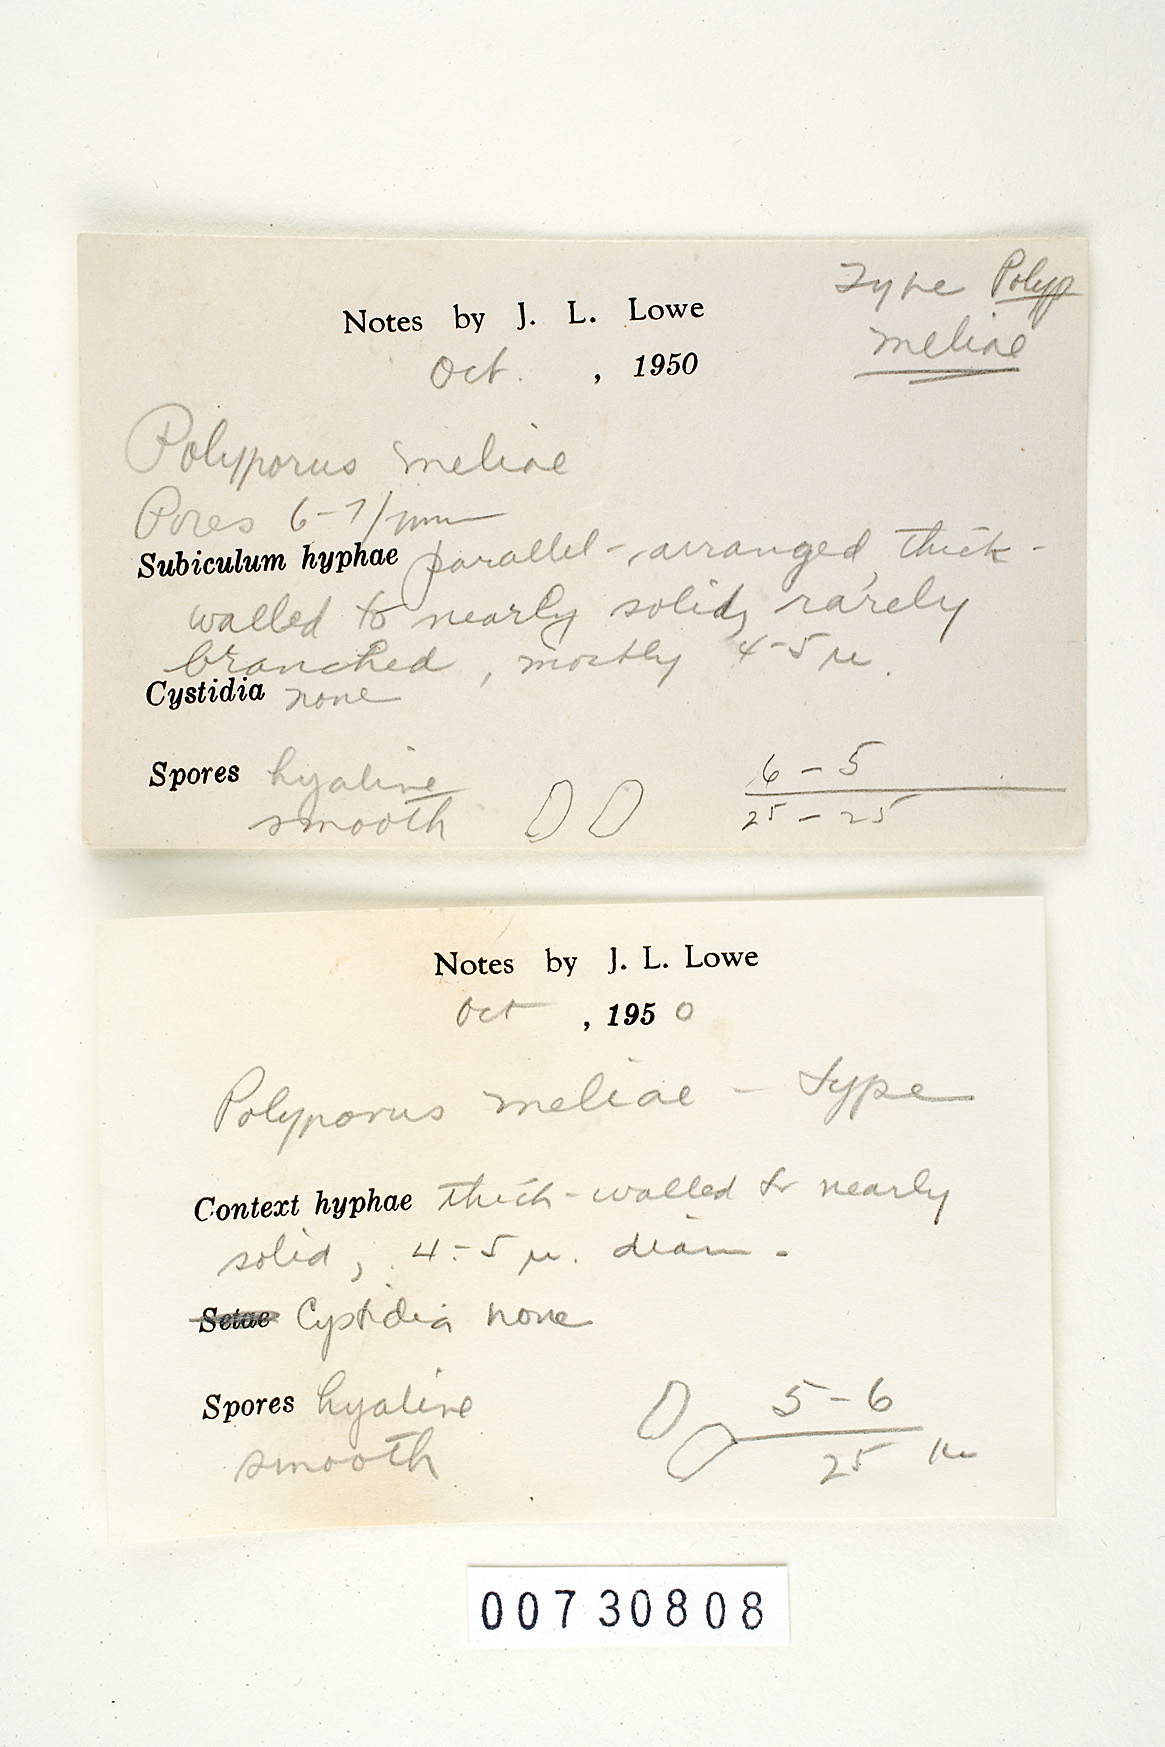 Type Polyp
meliae
Notes by J. L. Lowe
Oct. , 1950
Polyporus meliae
Pores 6-7/mm
Subiculum hyphae parallel-arranged, thick-
walled to nearly solid, rarely
branched, mostly 4-5 µ.
Cystidia none
Spores hyaline
smooth
6 - 5
25 - 25
Notes by J. L. Lowe
Oct , 1950
Polyporus meliae - type
Context hyphae thick-walled to nearly
solid, 4-5 µ. diam.
Setae Cystidia none
Spores hyaline
smooth
5-6
25 µ
00730808